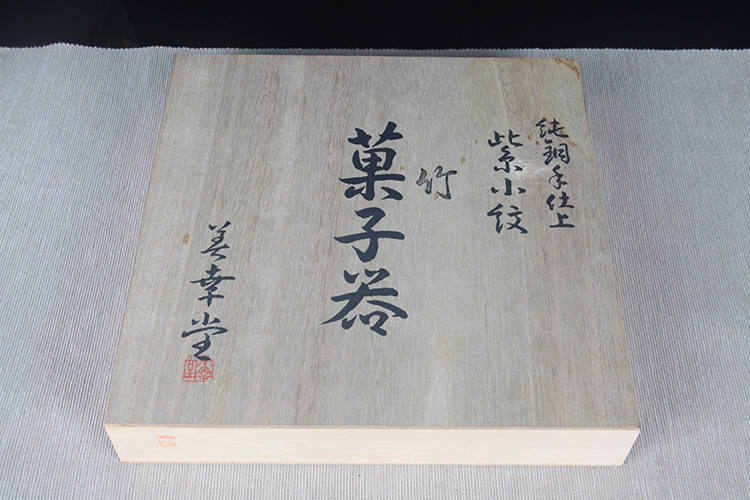 純銅手仕上
紫小紋
竹
菓子器
美幸堂